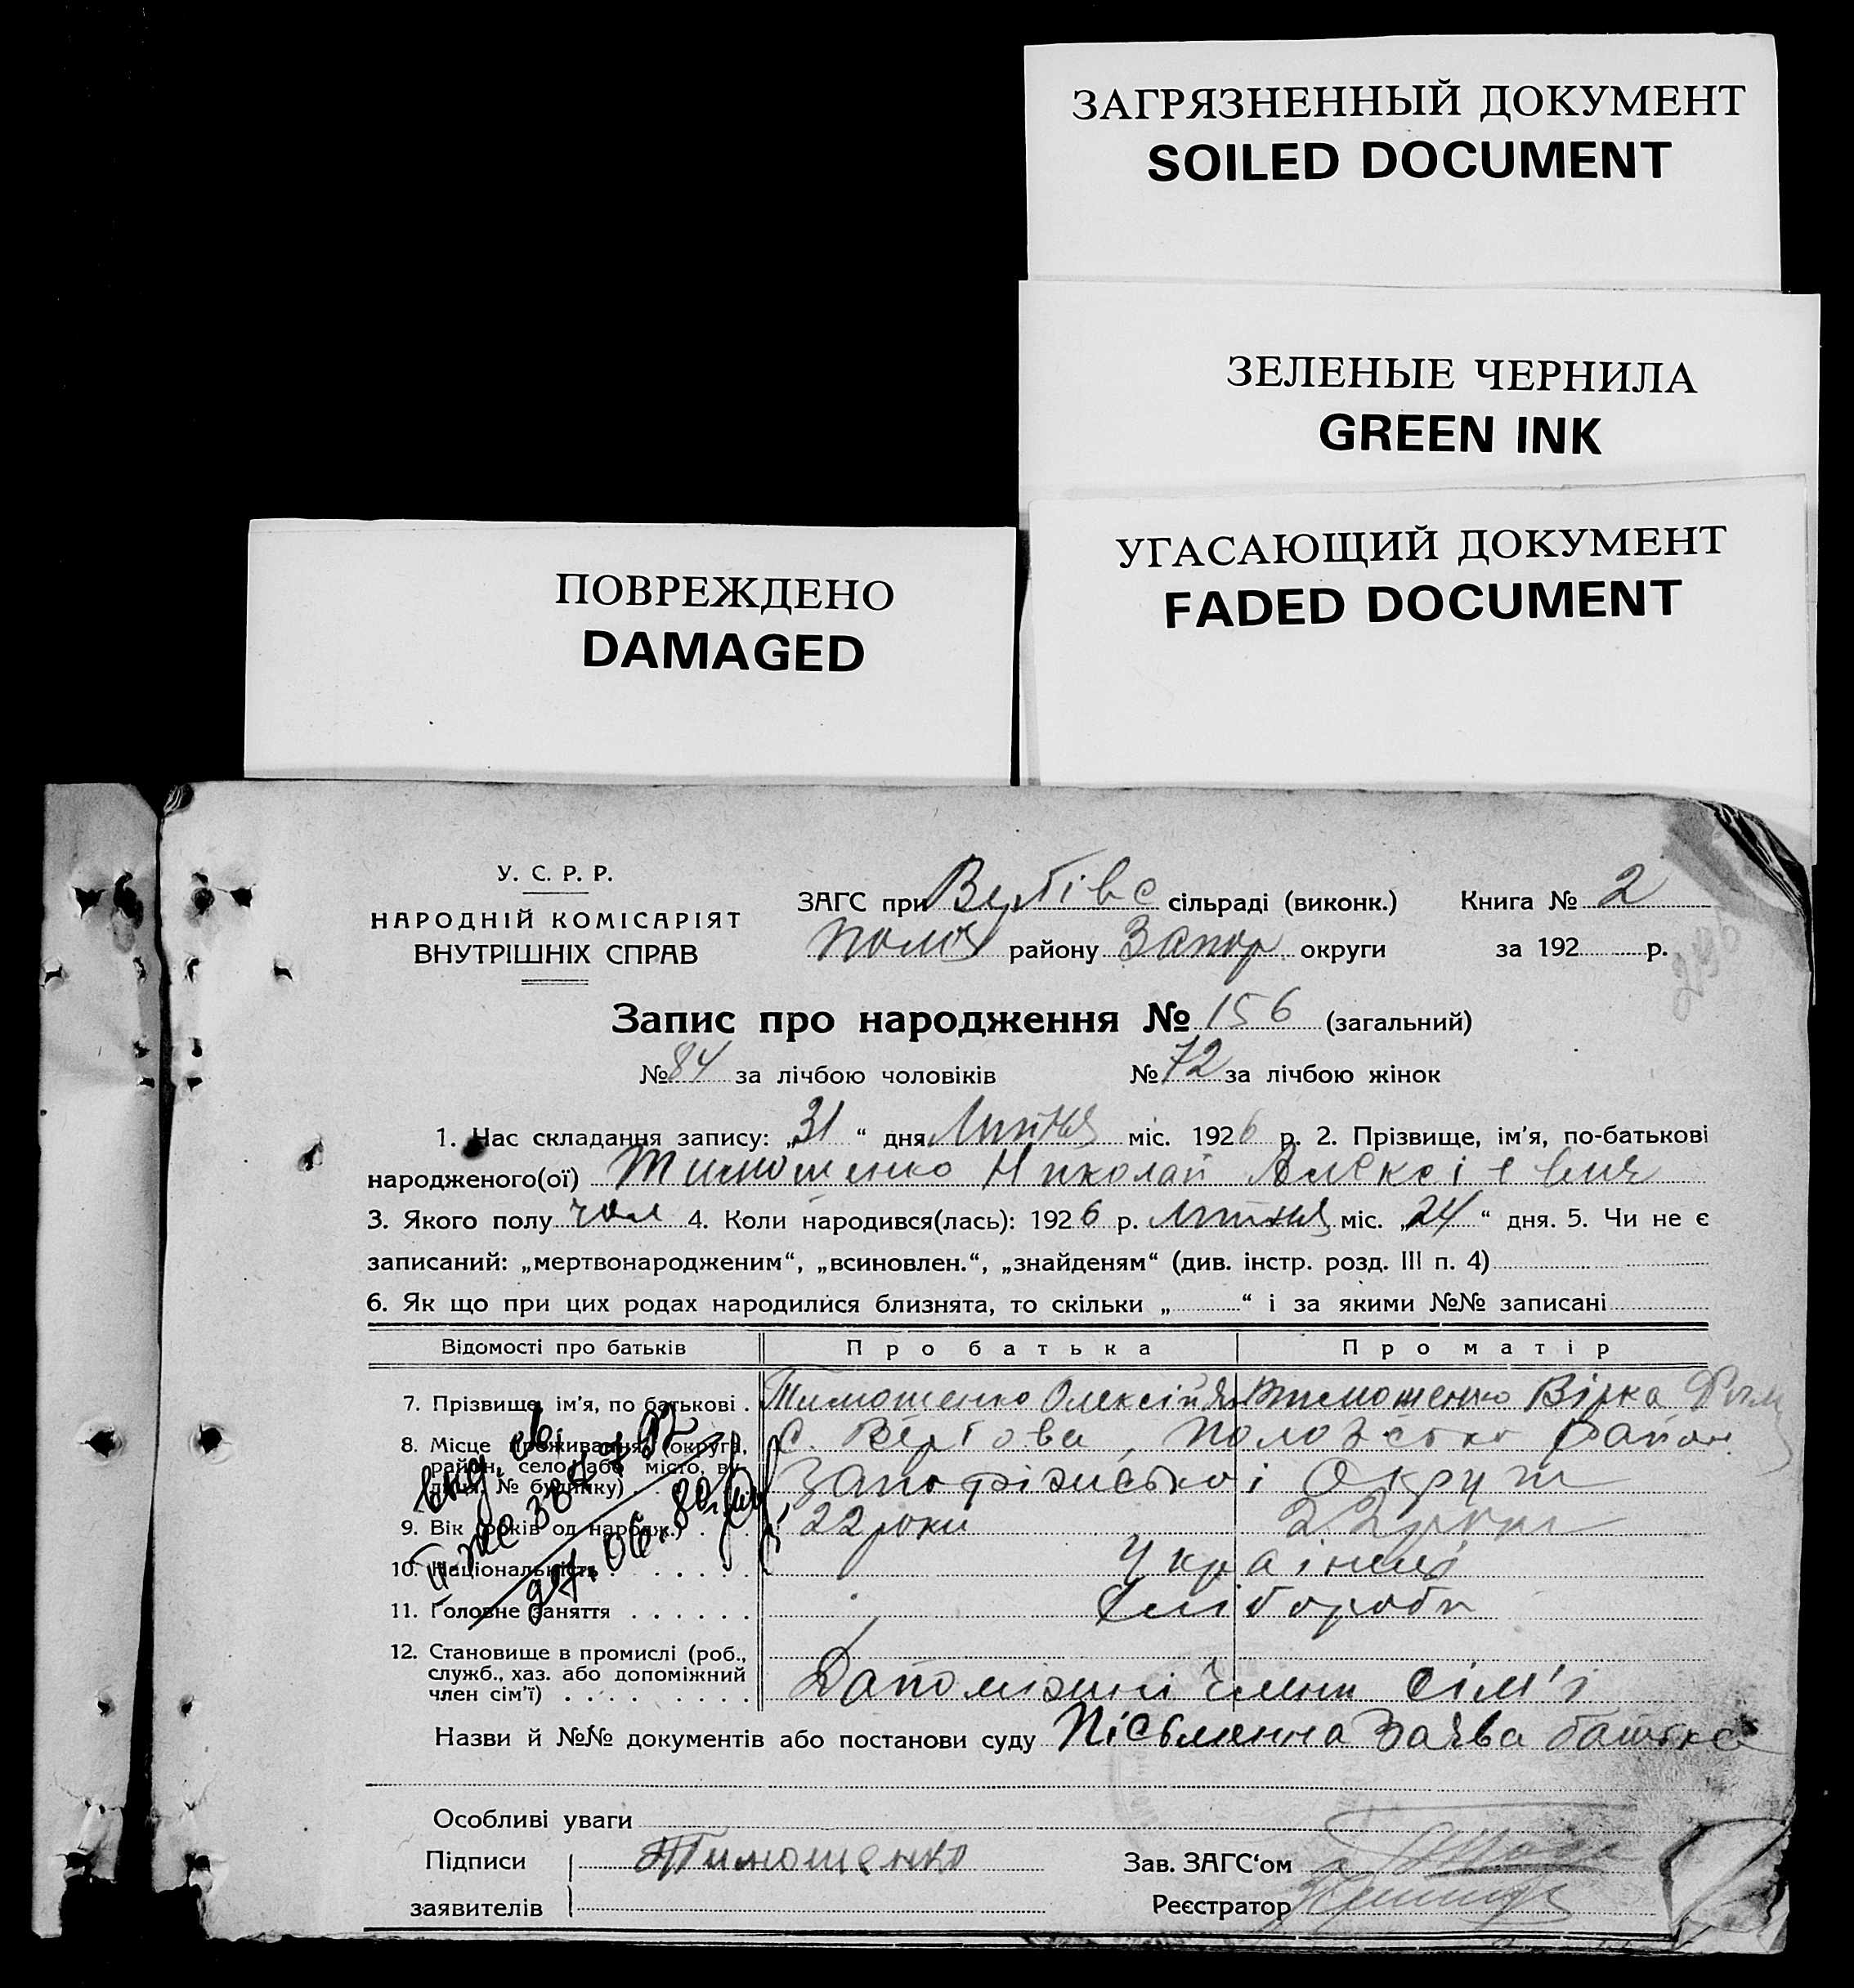 ЗАГРЯЗНЕННЫЙ ДОКУМЕНТ
SOILED DOCUMENT
ЗЕЛЕНЫЕ ЧЕРНИЛА
GREEN INK
УГАСАЮЩИЙ ДОКУМЕНТ
FADED DOCUMENT
ПОВРЕЖДЕНО
DAMAGED
У. С. Р. Р.
НАРОДНІЙ КОМІСАРІЯТ
ВНУТРІШНІХ СПРАВ
ЗАГС при сільраді (виконк.) Книга № 2
району Запор. округи за 192 р.
Запис про народження № 156 (загальний)
№ 84 за лічбою чоловіків № 72 за лічбою жінок
1. Час складання запису: „31“ дня Липня міс. 1926 р. 2. Прізвище, ім'я, по-батькові
народженого(ої) Тимошенко Николай Алексієвич
3. Якого полу чол 4. Коли народився(лась): 1926 р. Липня міс. „24“ дня. 5. Чи не є
записаний: „мертвонародженим“, „всиновлен.“, „знайденям“ (див. інстр. розд. III п. 4)
6. Як що при цих родах народилися близнята, то скільки „ “ і за якими №№ записані
Відомості про батьків Про батька Про матір
7. Прізвище, ім'я, по батькові . Тимошенко Олексій Тимошенко Вірка
8. Місце проживання (округа, район, село або місто, вулиця, № будинку) . с. Вербова, район
округи
9. Вік (років од народж.) . . 22 роки 22 роки
10. Національність . . . . . . . Українці
11. Головне заняття . . . . . . Хлібороби
12. Становище в промислі (роб.,
служб., хаз. або допоміжний
член сім'ї) . . . . . . . . . Допоміжні члени сім'ї
Назви й №№ документів або постанови суду Пісьменна Заява батька
Особливі уваги
Підписи Тимошенко Зав. ЗАГС'ом
заявителів Реєстратор
27.06.80